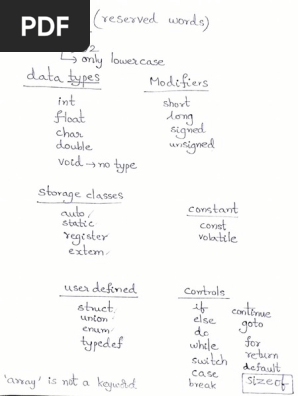 PDF
(reserved words)
2
↳ only lowercase
data types
int
float
char
double
void → no type
Modifiers
short
long
signed
unsigned
storage classes
auto
static
register
extern
constant
const
volatile
user defined
struct
union
enum
typedef
Controls
if
else
do
while
switch
case
break
continue
goto
for
return
default
sizeof
'array' is not a keyword.